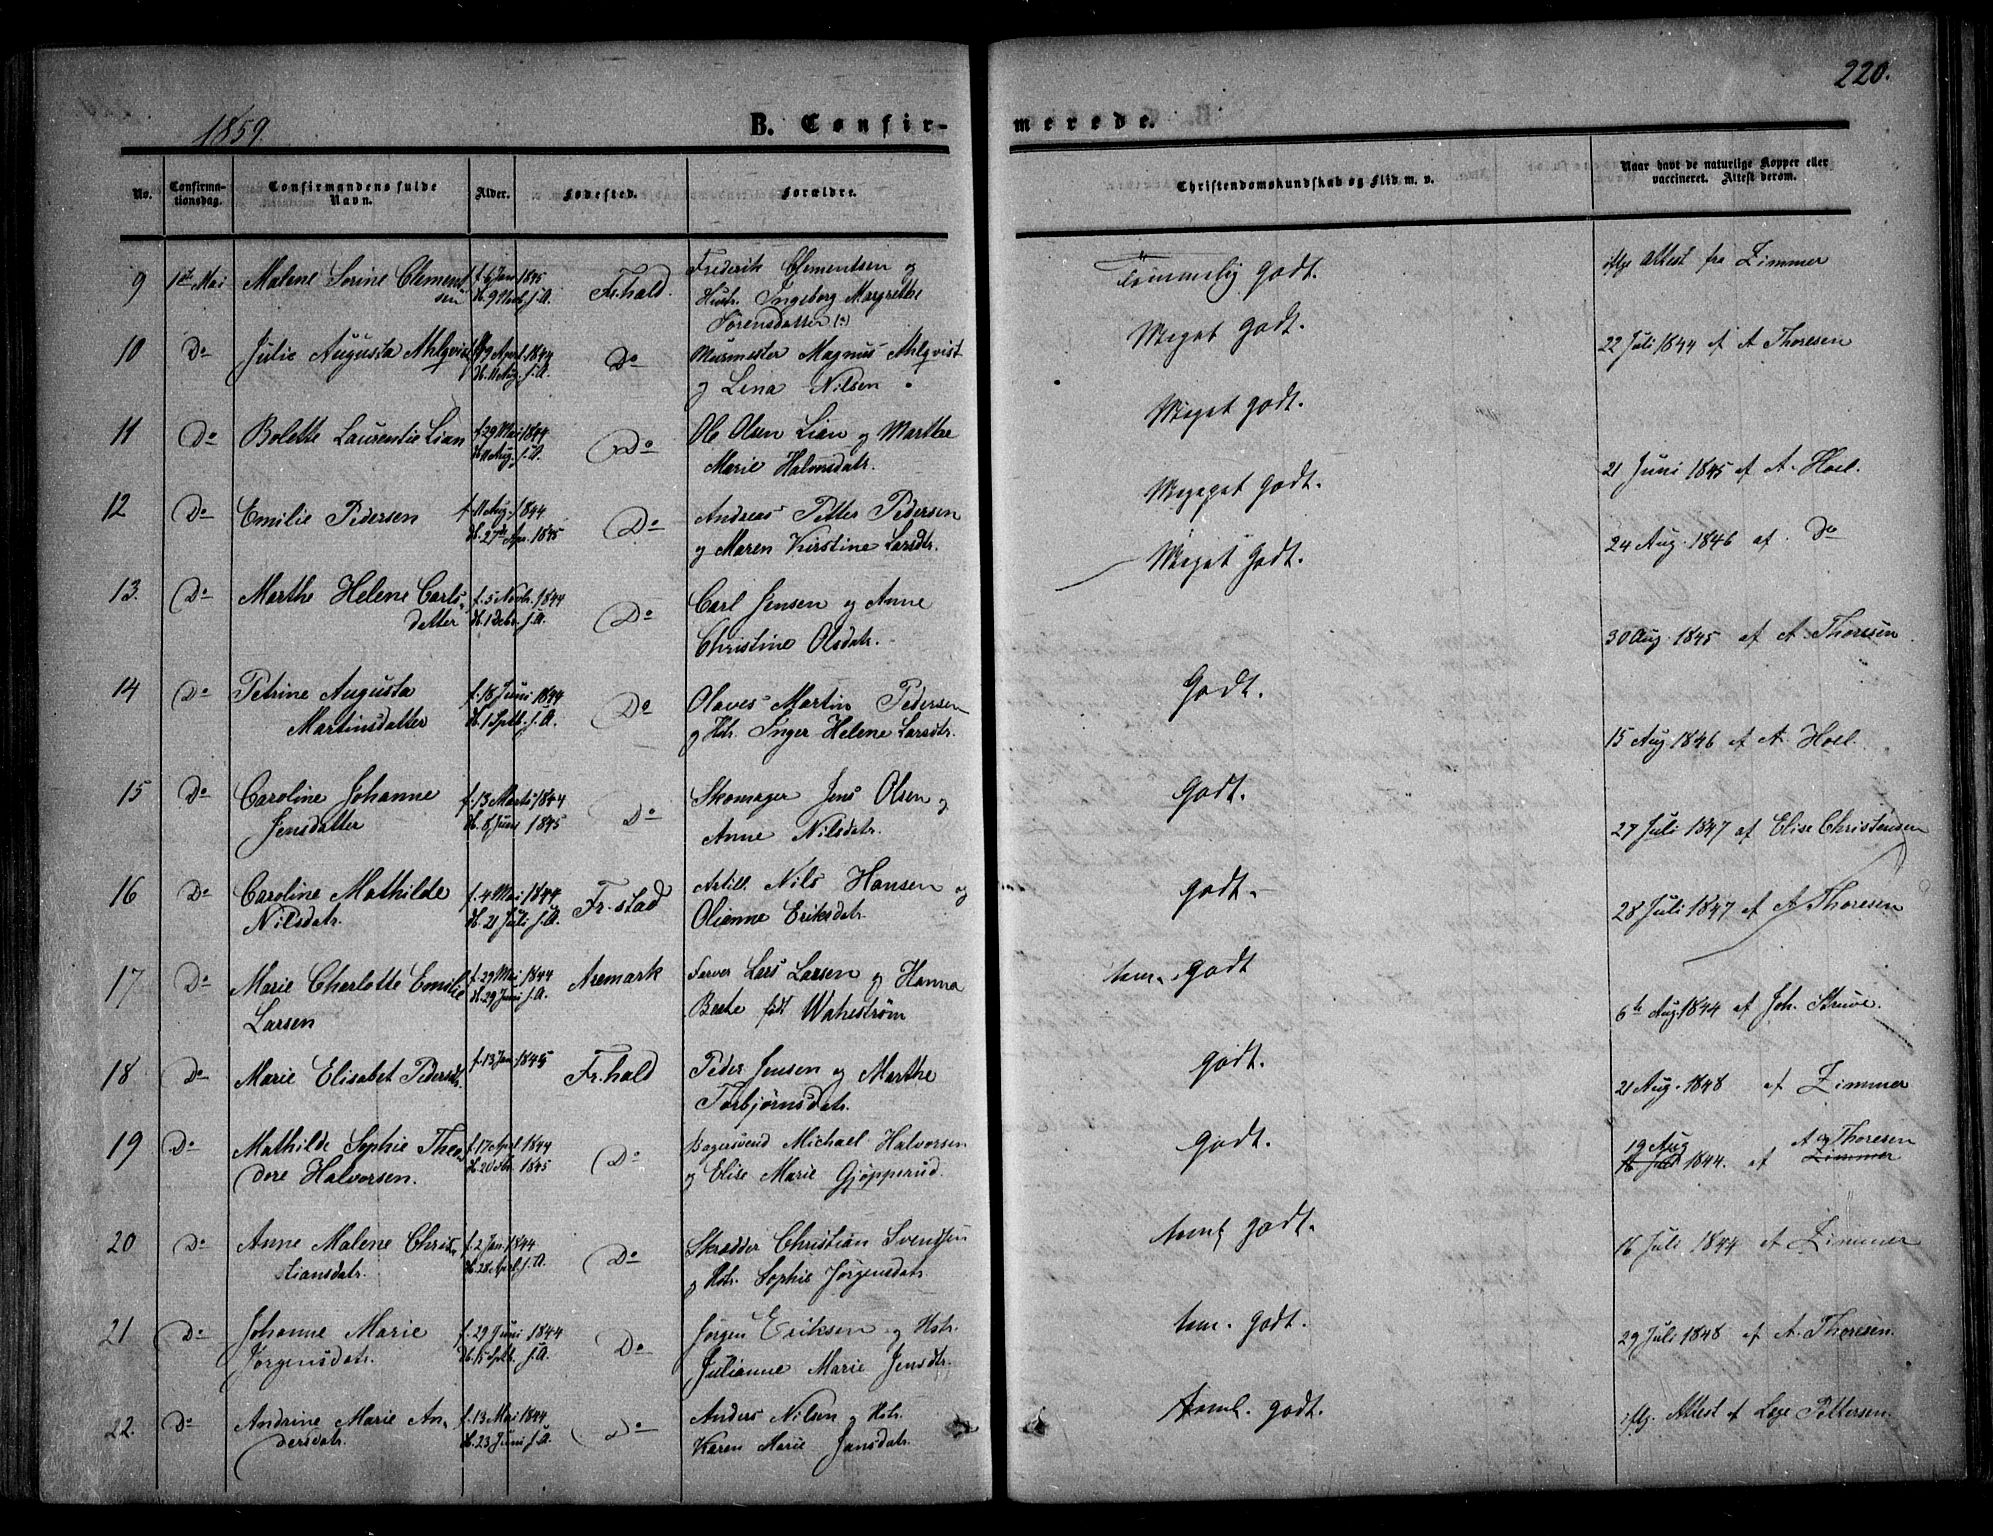 220.
1859.
B. Confir-
merede.
No.
Confirma-
tionsdag.
Confirmandens fulde
Navn.
Alder.
Fødested.
Forældre.
Christendomskundskab og Flid m. v.
Naar havt de naturlige Kopper eller
vaccineret. Attest derom.
9 1ste Mai Malene Sorine Clement
sen
f. 6 Jan 1845
Fr.hald.
Frederik Clementsen og
Hustr. Ingeborg Margrethe
Sørensdatter
Temmelig Godt.
iflge Attest fra Zimmer
10 Do Julie Augusta Ahlqvist
9 April 1844
db. 11 Aug. s.A.
Do
Murmester Magnus Ahlqvist
og Lena Nilsen
Meget Godt.
22 Juli 1844 af A Thoresen
11 Do Bolette Laurentie Lian
f. 29 Mai 1844
db. 11 Aug. s.A.
Do
Ole Olsen Lian og Marthe
Marie Halvorsdatr.
Meget Godt.
21 Juni 1845 af A. Hoel.
12 Do Emilie Pedersen
f. 11 Aug. 1844
db. 27de Apr. 1845
Do
Andreas Petter Pedersen
og Maren Kirstine Larsdtr.
Megeget Godt.
24 Aug. 1846 af. Do
13. Do Marthe Helene Carls-
datter
f. 5 Novbr. 1844
db. 1 Decbr s.A.
Do
Carl Jensen og Anne
Christine Olsdatr.
Meget Godt.
30 Aug. 1845 af A. Thoresen
14 Do Petrine Augusta
Martinsdatter
f. 18 Juni 1844
db. 1 Septb. s.A.
Do
Olaves Martin Pedersen
og Hstr. Inger Helene Larsdtr.
Godt.
15 Aug 1846 af A. Hoel.
15 Do Caroline Johanne
Jensdatter
f. 13 Marts 1844
db. 8 Juni 1845
Do
Skomager Jens Olsen og
Anne Nilsdatr.
Godt.
27 Juli 1847 af Elise Christensen
16 Do Caroline Mathilde
Nilsdatr.
f. 4 Mai 1844
db. 21 Juli s.A.
Fr.stad
Artill. Nils Hansen og
Olianne Eriksdatr.
Godt.
28 Juli 1847 af A Thoresen
17 Do Marie Charlotte Emilie
Larsen
f. 29 Mai 1844
db. 29 Juni s.A.
Aremark
Farver Lars Larsen og Hanna
Beate født Wahlstrøm
tem. Godt
6te Aug. 1844 af Joh. Struve.
18 Do Marie Elisabet Pedersdtr.
f. 13 Jan 1845
Fr.hald
Peder Jensen og Marthe
Torbjørnsdatr.
Godt.
21 Aug. 1848 af Zimmer
19 Do Mathilde Sophie Theo-
dore Halvorsen.
f. 17 April 1844
1845
Do
Bagersvend Michael Halvorsen
og Elise Marie Gjøpperud.
Godt.
19 Aug
1844. af
A Thoresen
Zimmer
20 Do Anne Malene Chris-
tiansdatr.
f. 2 Jan. 1844
db. 28 April. s.A.
Do
Skrædder Christian Svendsen
og Hstr. Sophie Jørgensdatr.
teml Godt.
16 Juli 1844 af Zimmer
21 Do Johanne Marie
Jørgensdatr.
f. 29 Juni 1844
db. 15 Septb. s.A.
Do
Jørgen Eriksen og Hstr.
Julianne Marie Jensdtr.
tem. Godt.
29 Juli 1848 af A. Thoresen.
22. Do Andrine Marie An-
dersdatr.
f. 13 Mai 1844
db. 23 Juni s.A.
Do
Anders Nilsen og Hstr.
Karen Marie Jansdatr.
teml. Godt.
iflg. Attest af Pettersen.